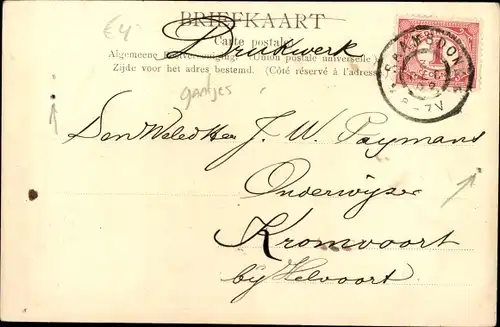 €4
BRIEFKAART
Carte postale
Drukwerk
Algemeene Union postale universelle
Zijde voor het adres bestemd. (Côté réservé à l'adresse
gaatjes
1
Den WelEd Heer J. W. Paymans
Onderwijzer
Kromvoort
bij Helvoort.